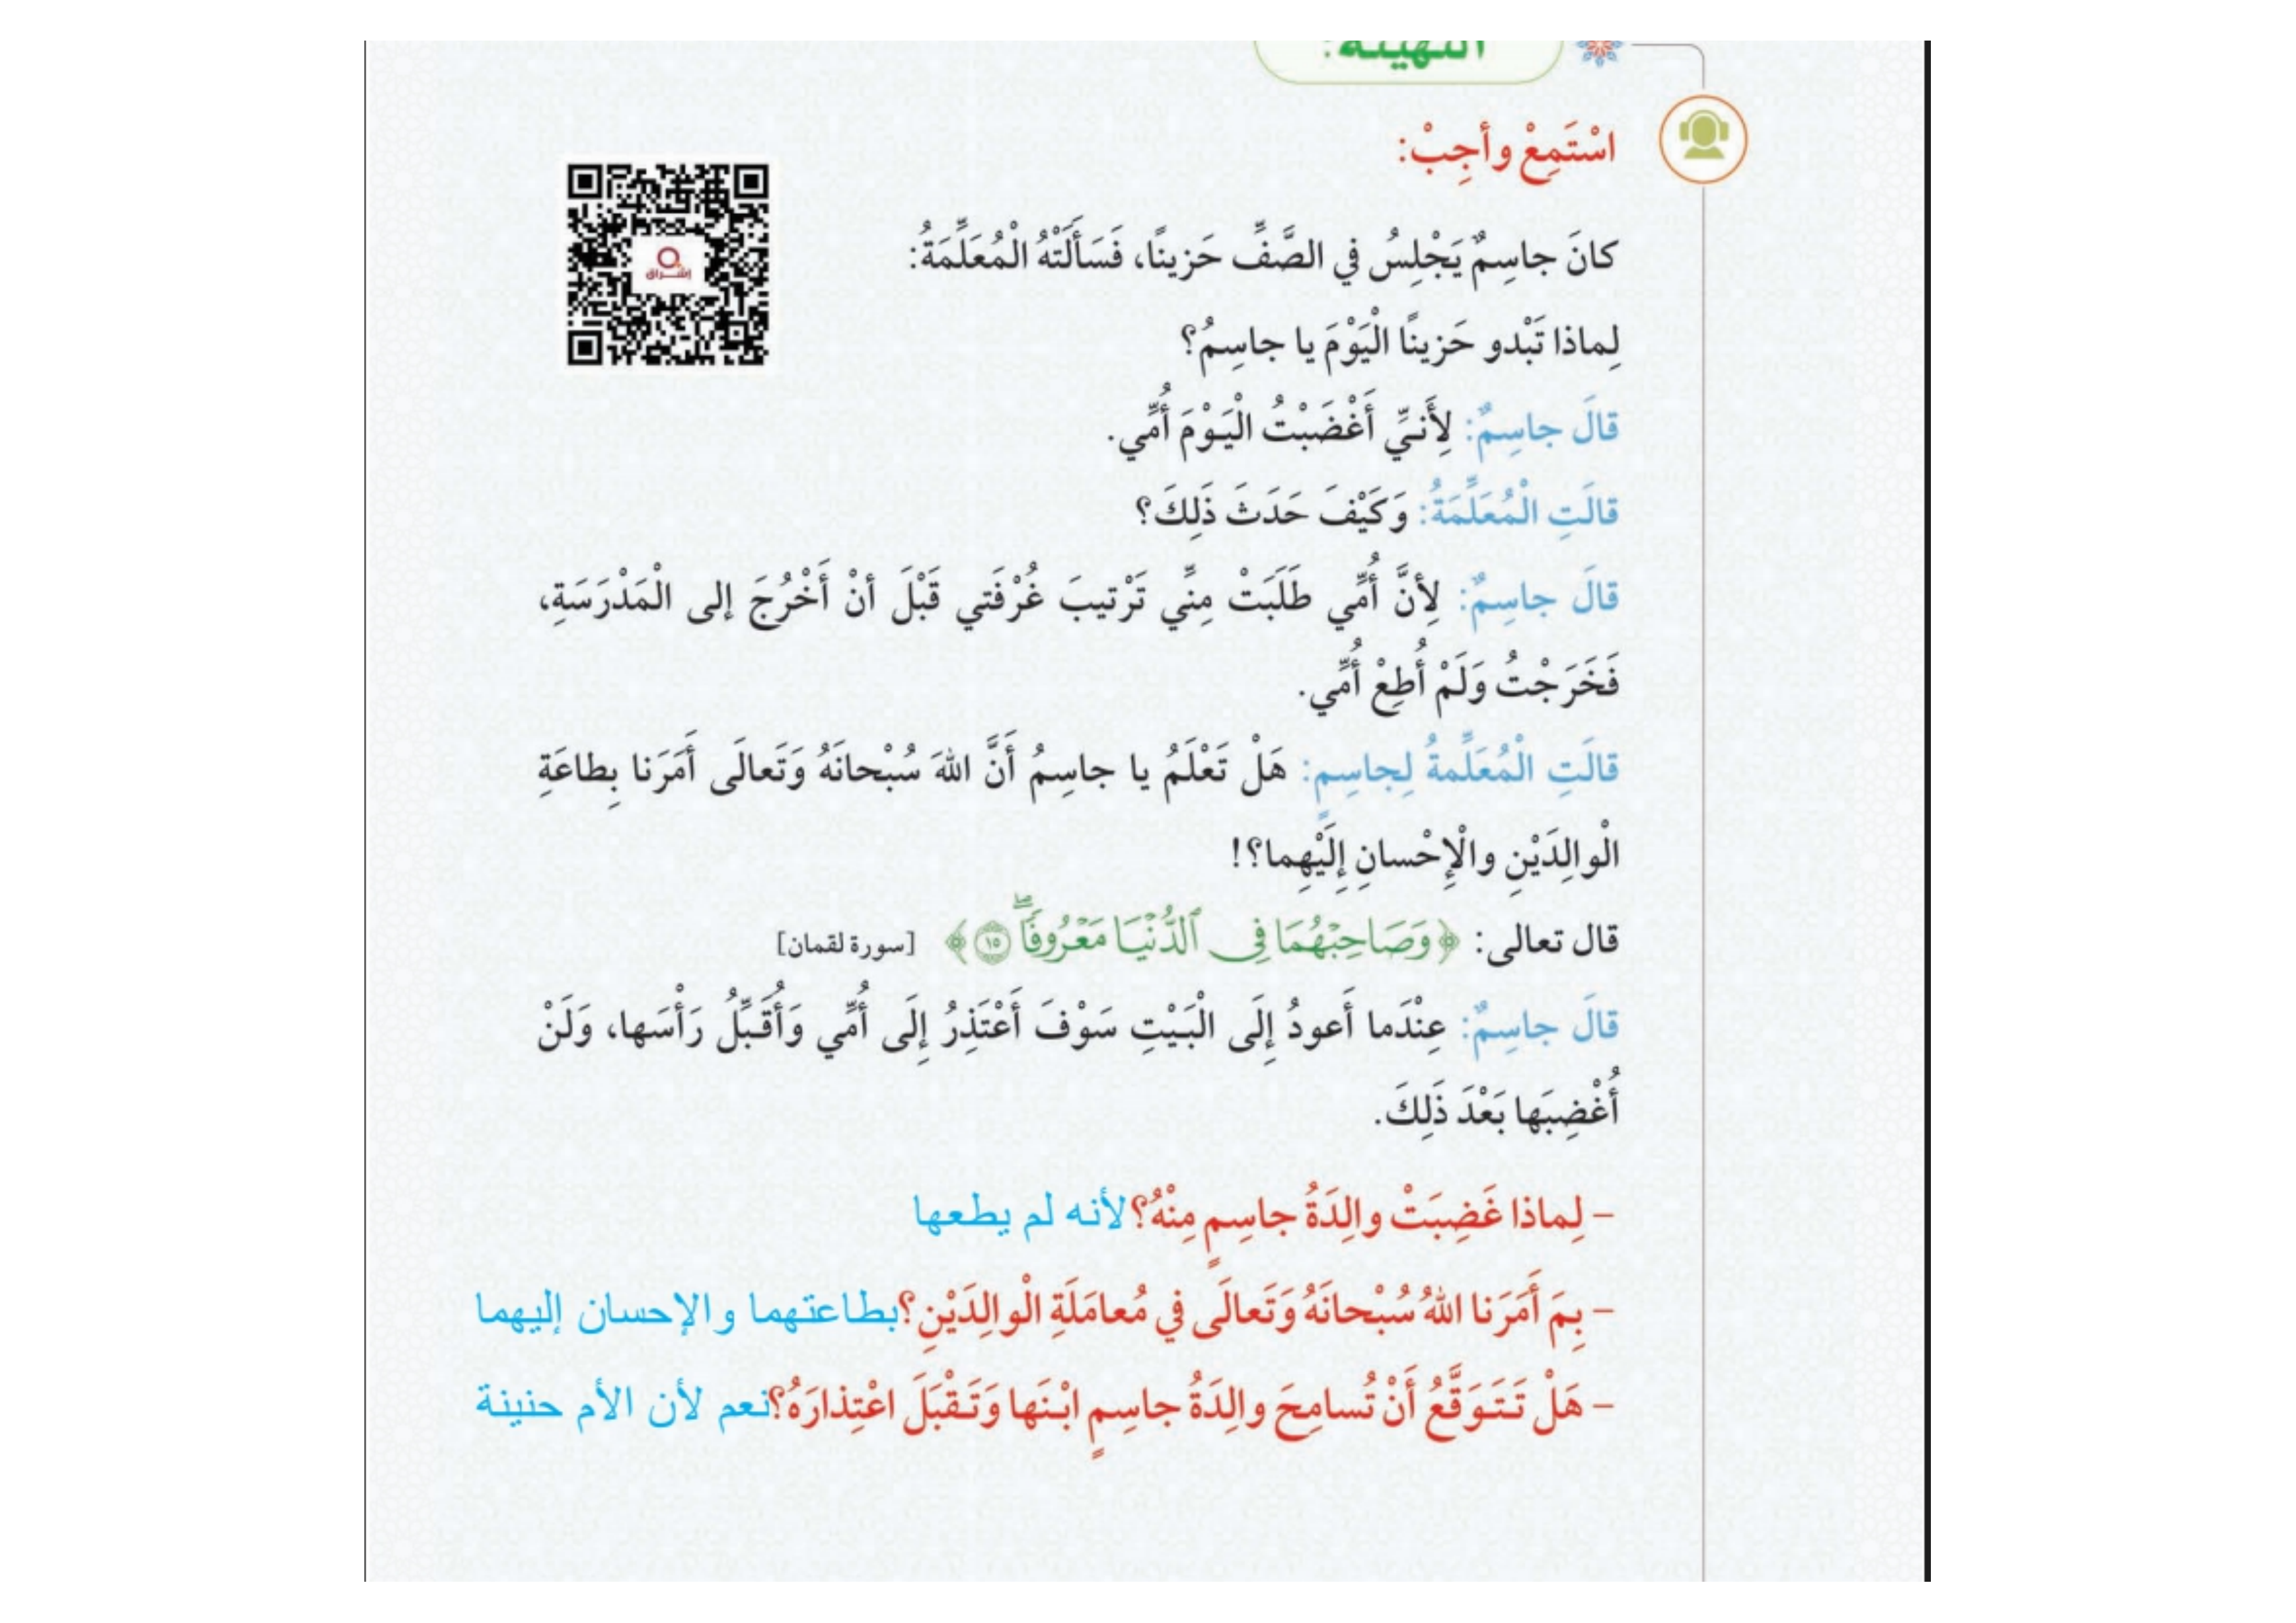 التهيئة:
اسْتَمِعْ وأجِبْ:
إشراق
كانَ جاسِمٌ يَجْلِسُ في الصَّفِّ حَزينًا، فَسَأَلَتْهُ الْمُعَلِّمَةُ:
لِماذا تَبْدو حَزينًا الْيَوْمَ يا جاسِمُ؟
قالَ جاسِمٌ: لِأَنّي أَغْضَبْتُ الْيَوْمَ أُمِّي.
قالَتِ الْمُعَلِّمَةُ: وَكَيْفَ حَدَثَ ذَلِكَ؟
قالَ جاسِمٌ: لِأنَّ أُمِّي طَلَبَتْ مِنِّي تَرْتيبَ غُرْفَتي قَبْلَ أنْ أَخْرُجَ إلى الْمَدْرَسَةِ،
فَخَرَجْتُ وَلَمْ أُطِعْ أُمِّي.
قالَتِ الْمُعَلِّمةُ لِجاسِمٍ: هَلْ تَعْلَمُ يا جاسِمُ أَنَّ اللهَ سُبْحانَهُ وَتَعالَى أَمَرَنا بِطاعَةِ
الْوالِدَيْنِ والْإِحْسانِ إِلَيْهِما؟!
قال تعالى: ﴿وَصَاحِبْهُمَا فِى ٱلدُّنْيَا مَعْرُوفًاۖ ١٥﴾ [سورة لقمان]
قالَ جاسِمٌ: عِنْدَما أَعودُ إِلَى الْبَيْتِ سَوْفَ أَعْتَذِرُ إِلَى أُمِّي وَأُقَبِّلُ رَأْسَها، وَلَنْ
أُغْضِبَها بَعْدَ ذَلِكَ.
– لِماذا غَضِبَتْ والِدَةُ جاسِمٍ مِنْهُ؟ لأنه لم يطعها
– بِمَ أَمَرَنا اللهُ سُبْحانَهُ وَتَعالَى في مُعامَلَةِ الْوالِدَيْنِ؟ بطاعتهما والإحسان إليهما
– هَلْ تَتَوَقَّعُ أَنْ تُسامِحَ والِدَةُ جاسِمٍ ابْنَها وَتَقْبَلَ اعْتِذارَهُ؟ نعم لأن الأم حنينة